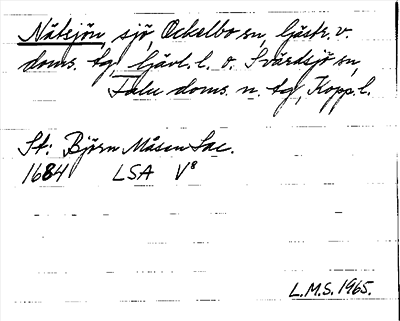 Nätsjön, sjö, Ockelbo sn, Gästr. v.
doms. tg, Gävl. l. o. Svärdsjö sn,
Falu doms. n. tg, Kopp. l.
St: Björn Måsen Lac.
1684 LSA V8
L.M.S. 1965.